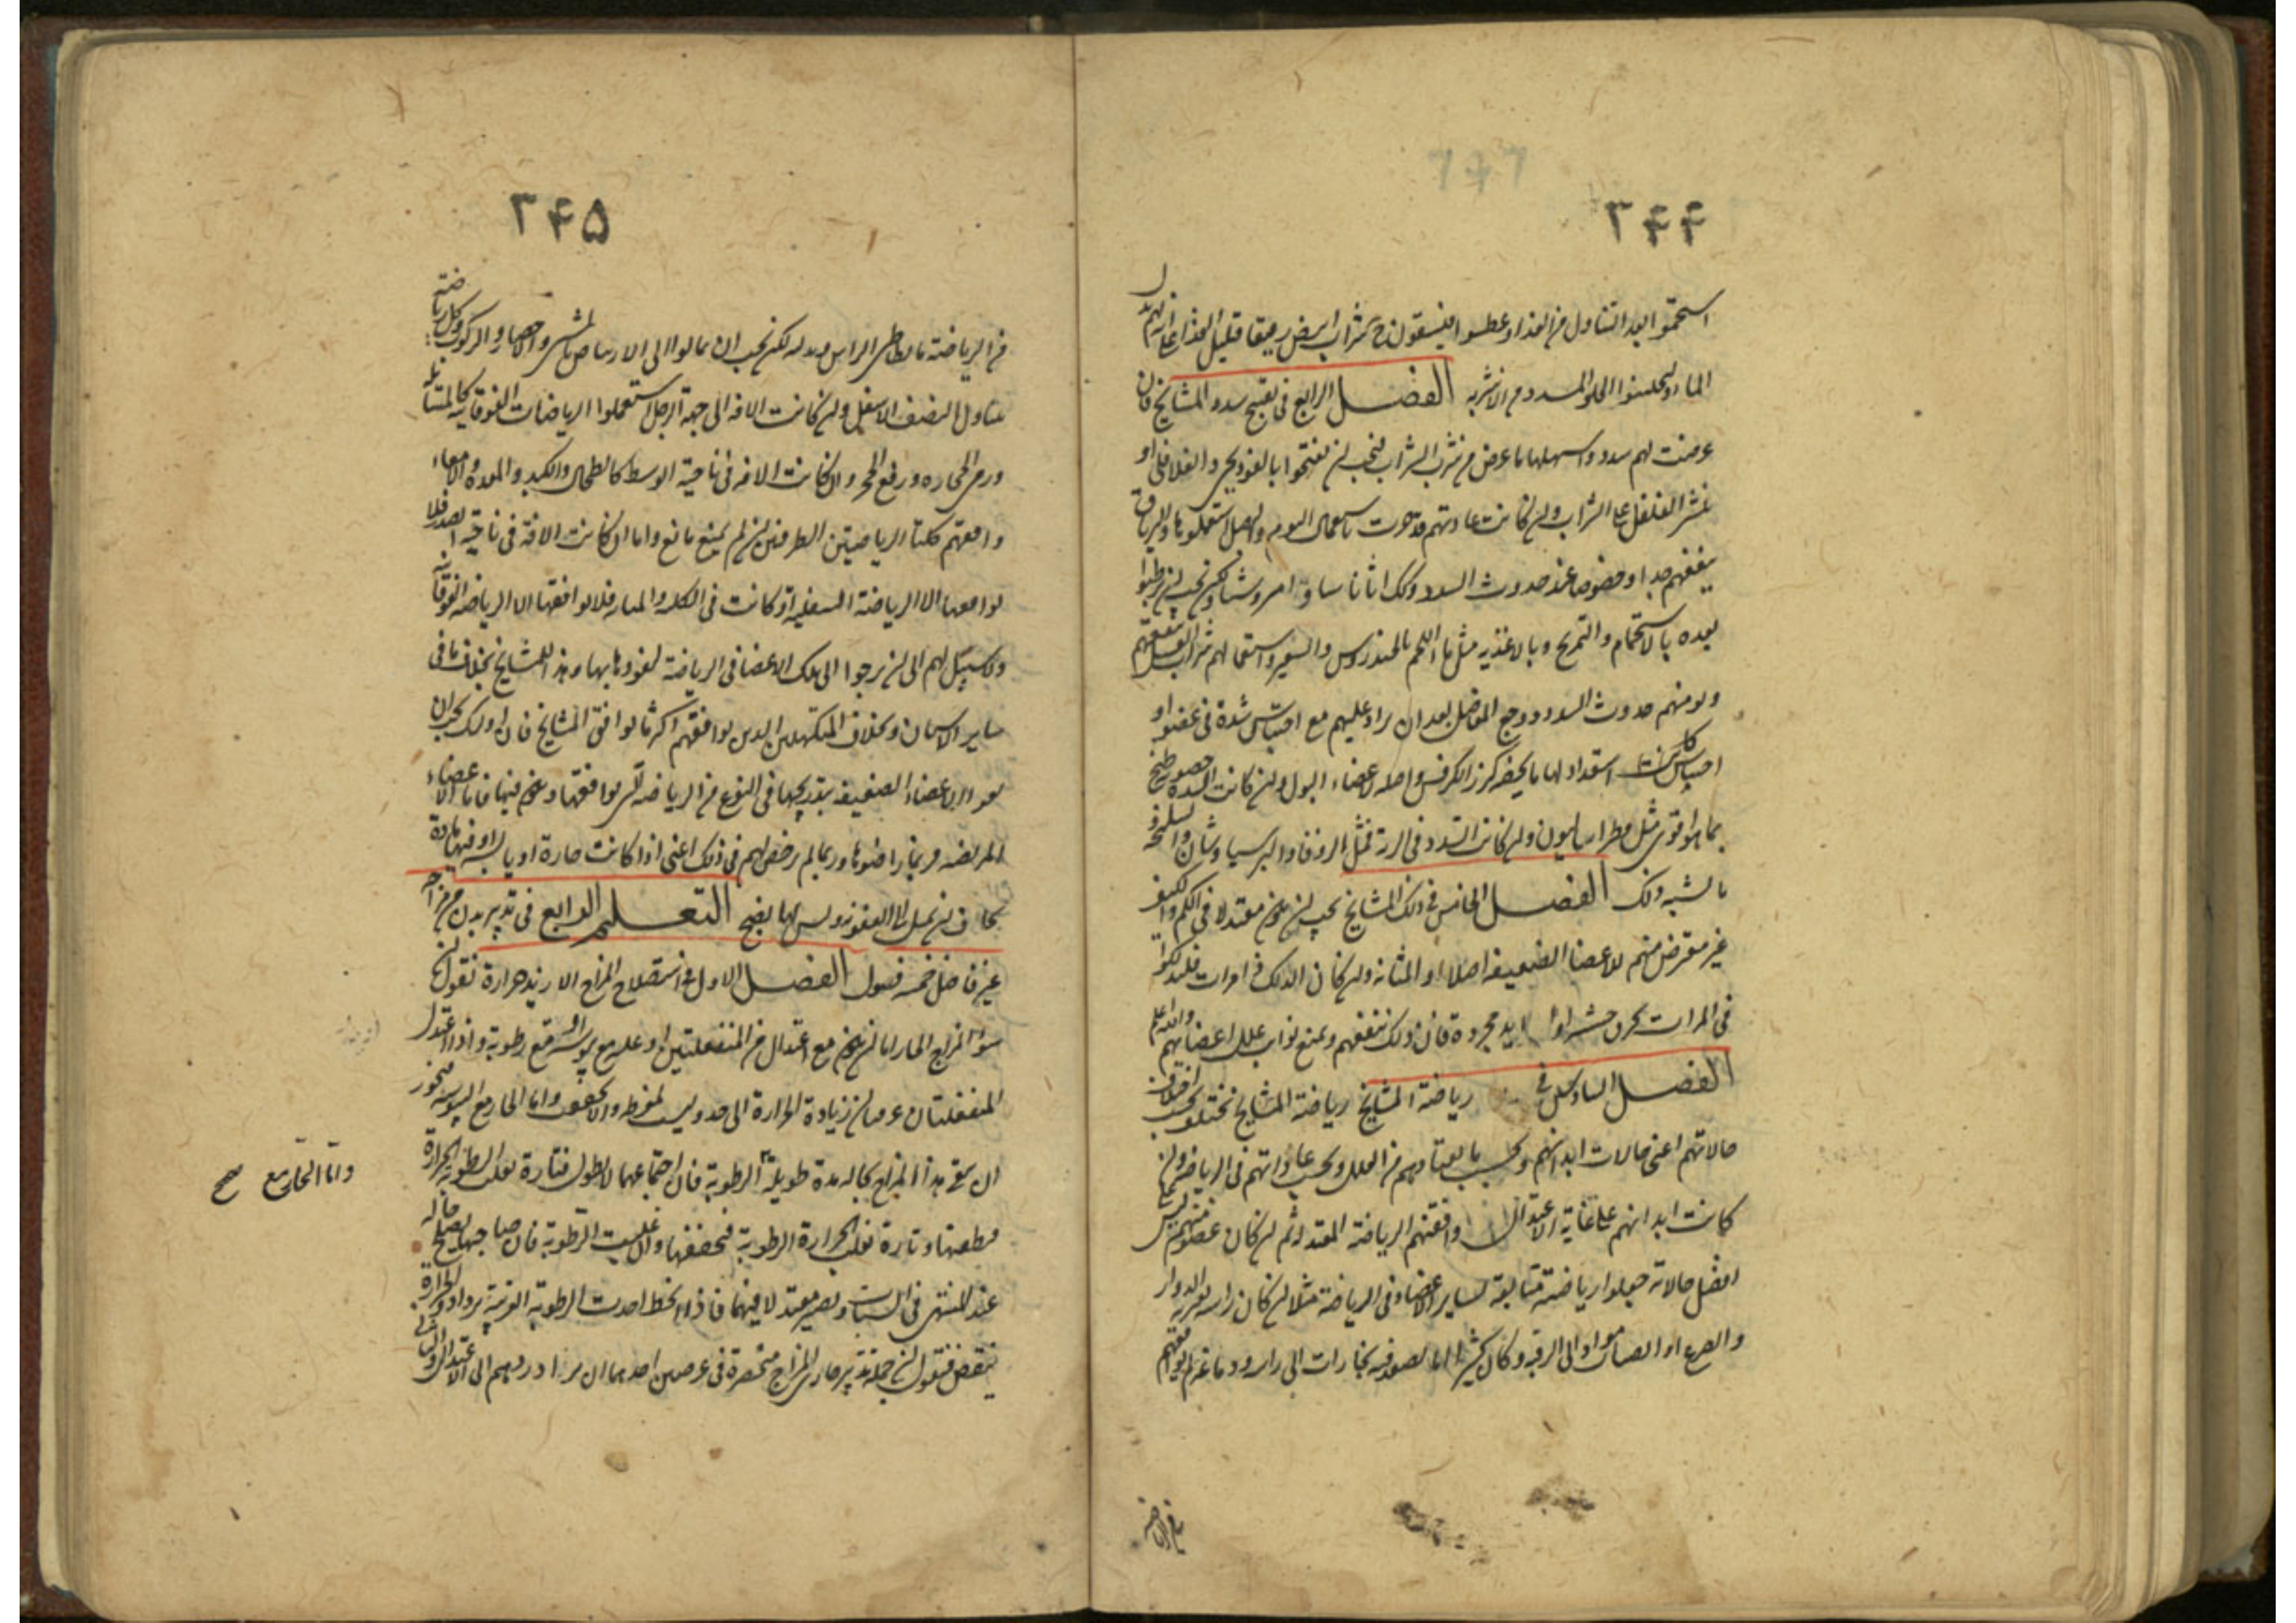 ۳۴۴
استحموا بعد التناول من الغذاء وعطشوا فيسقون شرابا ابيض رقيقا قليل الغذاء على انه بدل
الماء وليجتنبوا الحلو المسدد من الاشربة الفصل الرابع فى تفتيح سدد المشايخ فان
عرضت لهم سدد واسهلها ما عرض من شرب الشراب فيجب ان يفتحوا بالفودنجى والفلافلى او
نثر الفلفل على الشراب وان كانت عادتهم قد جرت باستعمال الثوم والبصل استعملوها والترياق
ينفعهم جدا وخصوصا عند حدوث السدد وكك اثاناسيا وامروسيا ولكن يجب ان يرطبوا
بعده بالاستحمام والتمريخ وبالاغذيه مثل ماء اللحم بالخندروس والشعير واستعمالهم شراب العسل ينفعهم
ويومنهم حدوث السدد ووجع المفاصل بعد ان يزاد عليهم مع احتباس سدة فى عضو او
احساس استعداد لها ما يخصه كبزر الكرفس واصله لاعضاء البول وان كانت السدة حصوية طبخ
بما هو اقوى مثل فطراساليون وان كانت السدد فى الرية فمثل الزوفا والبرسياوشان والسليخة و
ما يشبه ذلك الفصل الخامس فى دلك المشايخ يجب ان يكون معتدلا فى الكم والكيف
غير متعرض منهم للاعضاء الضعيفه اصلا او المثانة وان كان الدلك فى مرات فليدلكوا
فى المرات بخرق خشنه او ايد مجردة فان ذلك ينفعهم ويمنع نوايب علل اعضائهم والله اعلم
الفصل السادس فى رياضة المشايخ رياضة المشايخ تختلف بحسب اختلاف
حالاتهم اعنى حالات ابدانهم وبحسب ما يعتادهم من العلل وبحسب عاداتهم فى الرياضة فان
كانت ابدانهم على غاية الاعتدال وافقتهم الرياضة المعتدلة ثم ان كان عضو منهم ليس على
افضل حالاته جعلوا رياضته متابعة لساير الاعضاء فى الرياضة مثلا ان كان راسه يعتريه الدوار
والصرع او انصباب مواد الى الرقبة وكان كثيرا ما يصعد فيه بخارات الى راسه ودماغه لم يوافقهم
من الرياضة
۳۴۵
من الرياضة ما يطاطى الراس ويدليه لكن يجب ان يمالوا الى الارتياض بالمشى والاحضار والركوب وكل رياضة
تتناول النصف الاسفل وان كانت الافه الى جهة الرجل استعملوا الرياضات الفوقانيه كالمشايله
ورمى الحجاره ورفع الحجر وان كانت الافه فى ناحية الوسط كالطحال والكبد والمعدة والامعاء
وافقتهم كلتا الرياضتين الطرفيتين ان لم يمنع مانع واما ان كانت الافة فى ناحية الصدر فلا
يوافقها الا الرياضة السفلية او كانت فى الكلى والمثانه فلا يوافقها الا الرياضة الفوقانيه
ولا سبيل لهم الى ان يدرجوا الى تلك الاعضاء فى الرياضة ليقووها بها وهذا للمشايخ بخلاف ما فى
ساير الاسنان وبخلاف المكتهلين الذين يوافقهم اكثر ما يوافق المشايخ فان اولئك يجب ان
يقووا الاعضاء الضعيفه بتدريجها فى النوع من الرياضة التى توافقها وتكون فيها فاما الاعضاء
المريضه فربما راضوها وربما لم يرخص لهم فى ذلك اعنى اذا كانت حارة او يابسة او فيها مادة
يخاف ان تميل الى العفونة وليس لها نضج التعليم الرابع فى تدبير بدن من مزاجه
غير فاضل خمسه فصول الفصل الاول فى استصلاح المزاج الازيد حرارة نقول ان
سوء المزاج الحار اما ان يكون مع اعتدال من المنفعلتين او غلبة مع يبوسة او مع رطوبة واذا اعتدل
المنفعلتان عرف ان زيادة الحرارة الى حد وليست بمفرطه والا لجفف واما الحار مع اليبوسه فيجوز
ان يبقى هذا المزاج بحاله مدة طويلة الرطوبة فان اجتماعهما لا يطول فتارة تغلب الرطوبه الحرارة
فتطفئها وتارة تغلب الحرارة الرطوبة فتجففها وان غلبت الرطوبة فان صاحبها يصلح حاله
عند المنتهى فى الشباب ويصير معتدلا فيهما فاذا انحط احدت الرطوبة الغريبة تزداد والحرارة
تنقص فنقول ان جملة تدبير حارى المزاج منحصرة فى غرضين احدهما ان يردهم الى الاعتدال والثانى
واما الحار مع صح